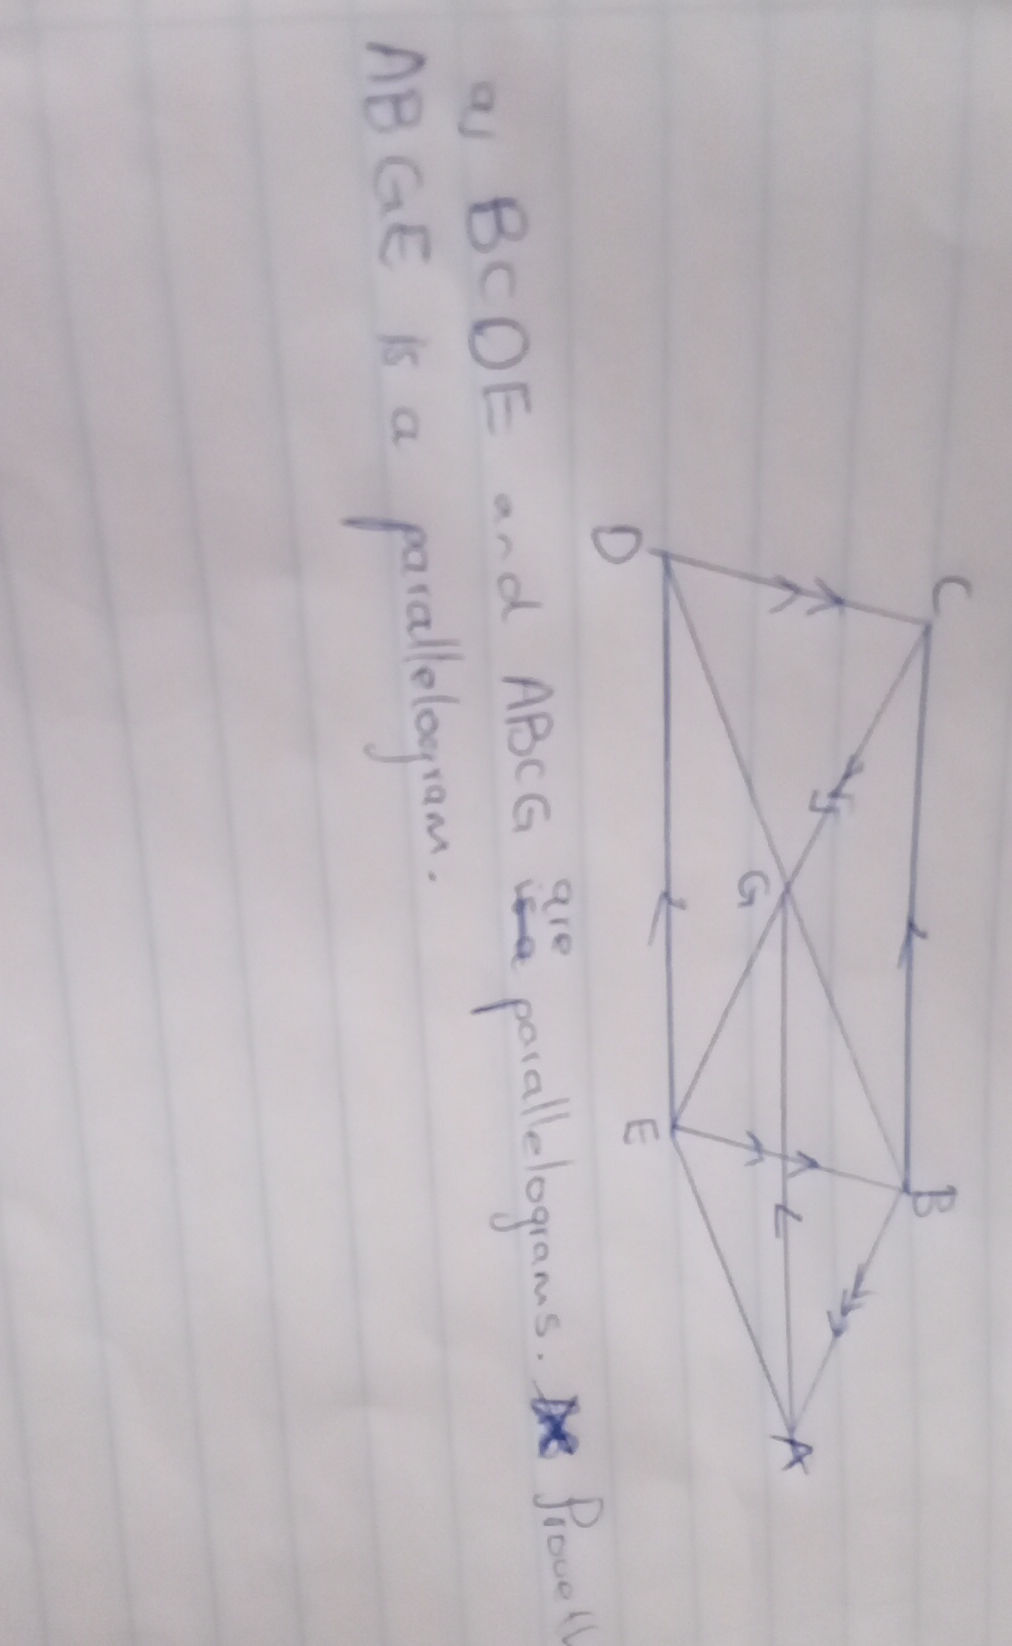 D
C
G
E
B
A
a) BCDE and ABCG are parallelograms. Prove
ABGE is a parallelogram.